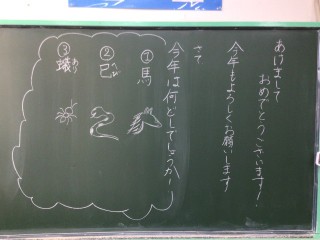 あけまして
おめでとうございます!
今年もよろしくお願いします
さて
今年は何どしでしょうか!
①馬
②巳へび
③蟻あり